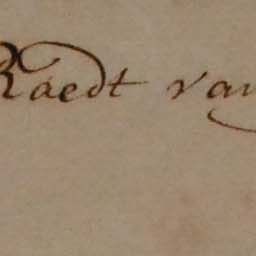 Raedt van